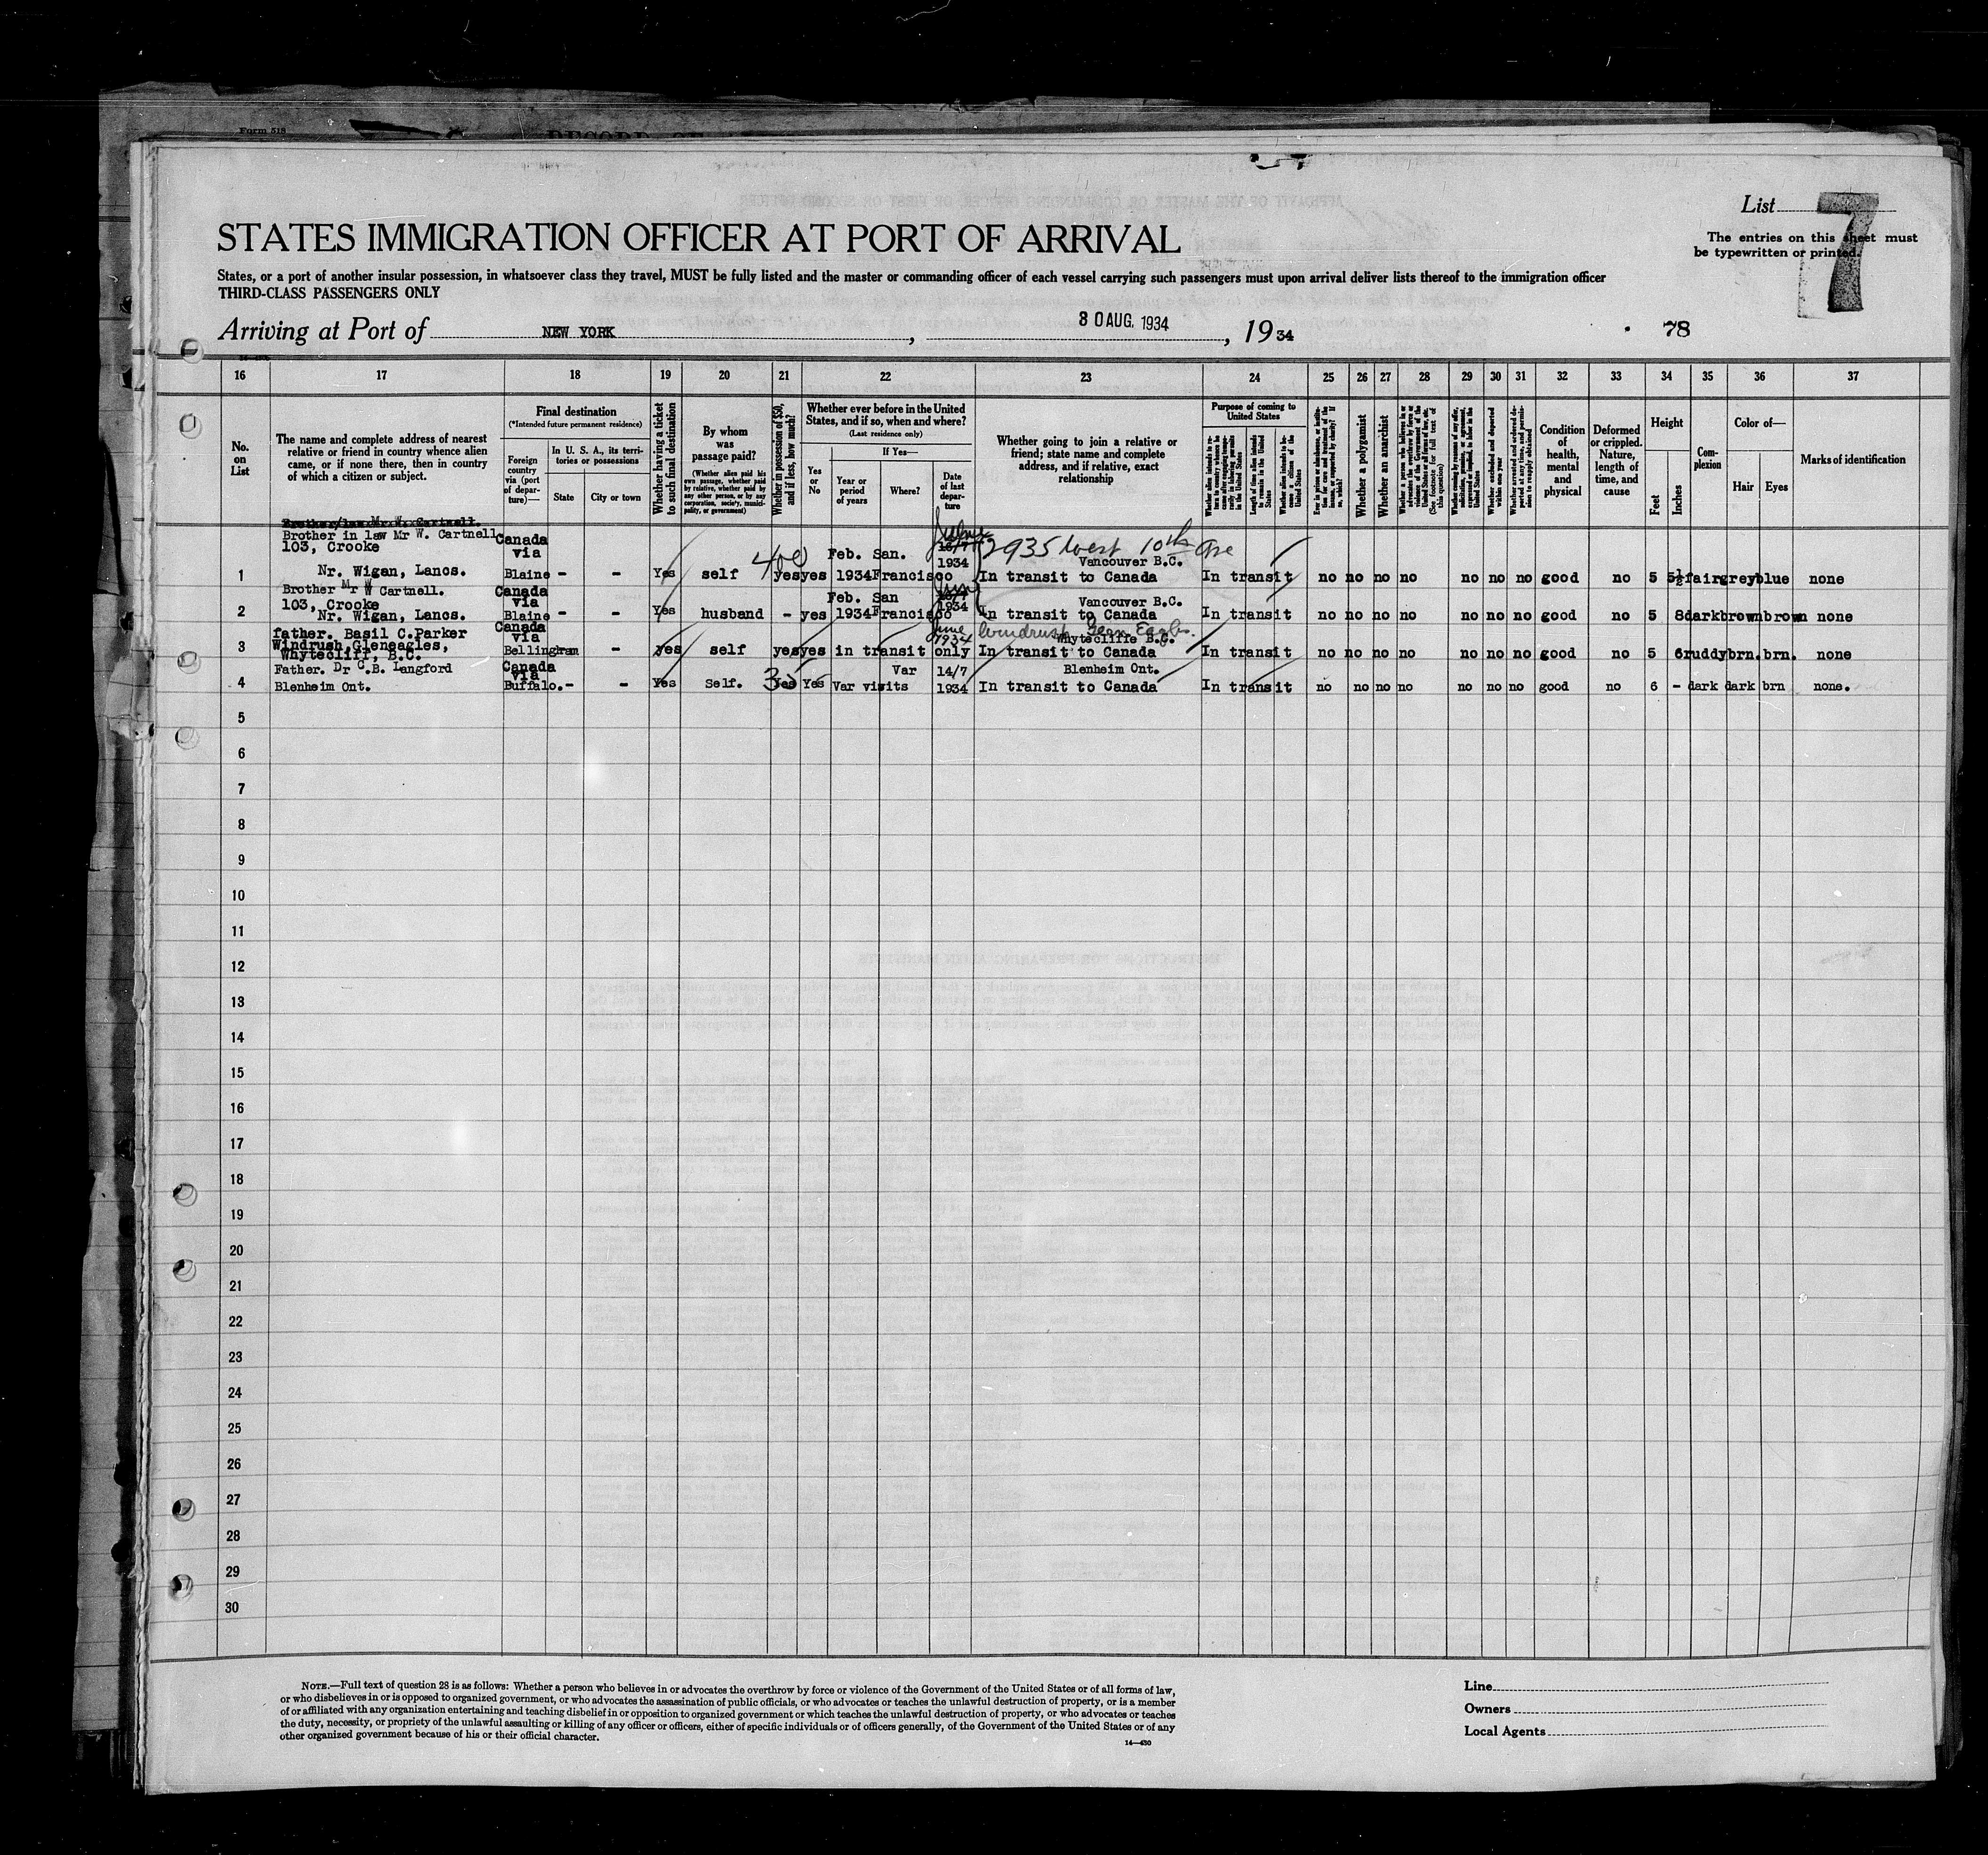 Form 518
List 7
STATES IMMIGRATION OFFICER AT PORT OF ARRIVAL
The entries on this sheet must
be typewritten or printed.
States, or a port of another insular possession, in whatsoever class they travel, MUST be fully listed and the master or commanding officer of each vessel carrying such passengers must upon arrival deliver lists thereof to the immigration officer
THIRD-CLASS PASSENGERS ONLY
Arriving at Port of NEW YORK, 30 AUG. 1934, 1934 78
16 17 18 19 20 21 22 23 24 25 26 27 28 29 30 31 32 33 34 35 36 37
No. on List
The name and complete address of nearest
relative or friend in country whence alien
came, or if none there, then in country
of which a citizen or subject.
Final destination
(*Intended future permanent residence)
Foreign country via (port of departure)—
In U. S. A., its territories or possessions
State City or town
Whether having a ticket to such final destination
By whom was passage paid?
(Whether alien paid his own passage, whether paid by relative, whether paid by any other person, or by any corporation, society, municipality, or government)
Whether in possession of $50, and if less, how much?
Whether ever before in the United
States, and if so, when and where?
(Last residence only)
Yes or No
If Yes—
Year or period of years
Where?
Date of last departure
Whether going to join a relative or
friend; state name and complete
address, and if relative, exact
relationship
Purpose of coming to United States
Length of time alien intends to remain in the United States
Whether alien intends to become a citizen of the United States
Whether a polygamist
Whether an anarchist
(See footnote for full text of this question)
Whether excluded and deported within one year
Condition of health, mental and physical
Deformed or crippled. Nature, length of time, and cause
Height
Feet Inches
Complexion
Color of—
Hair Eyes
Marks of identification
Brother in law Mr W. Cartnell Canada
103, Crooke via Feb. San. 2935 West 10th Ave
1934 Vancouver B.C.
1 Nr. Wigan, Lancs. Blaine - - Yes self 400 yes yes 1934 Francisco In transit to Canada In transit no no no no no no no good no 5 5½ fair grey blue none
Brother Mr W Cartnell. Canada
103, Crooke via Feb. San 1934 Vancouver B.C.
2 Nr. Wigan, Lancs. Blaine - - Yes husband - yes 1934 Francisco In transit to Canada In transit no no no no no no no good no 5 8 dark brown brown none
father. Basil C.Parker Canada June
Windrush Gleneagles, via 1934 Windrush Whytecliffe B.C.
3 Whytecliff, B.C. Bellingham - yes self yes yes in transit only In transit to Canada In transit no no no no no no no good no 5 6 ruddy brn. brn. none
Father. Dr C.B. Langford Canada via Var 14/7 Blenheim Ont.
4 Blenheim Ont. Buffalo. - - Yes Self. 35 Yes Yes Var visits 1934 In transit to Canada In transit no no no no no no no good no 6 - dark dark brn none.
5
6
7
8
9
10
11
12
13
14
15
16
17
18
19
20
21
22
23
24
25
26
27
28
29
30
NOTE.—Full text of question 28 is as follows: Whether a person who believes in or advocates the overthrow by force or violence of the Government of the United States or of all forms of law,
or who disbelieves in or is opposed to organized government, or who advocates the assassination of public officials, or who advocates or teaches the unlawful destruction of property, or is a member
of or affiliated with any organization entertaining and teaching disbelief in or opposition to organized government or which teaches the unlawful destruction of property, or who advocates or teaches
the duty, necessity, or propriety of the unlawful assaulting or killing of any officer or officers, either of specific individuals or of officers generally, of the Government of the United States or of any
other organized government because of his or their official character.
14—430
Line
Owners
Local Agents